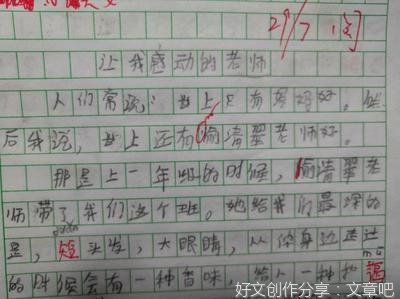 让我感动的老师
人们常说：世上只有妈妈好。然
后我说，世上还有偷清翠老师好。
那是上一年班的时候，偷清翠老
师带了我们这个班。她给我们最深的
duǎn
是，短头发，大眼睛，从你身边走过
的时候会有一种香味，给人一种和
好文创作分享：文章吧